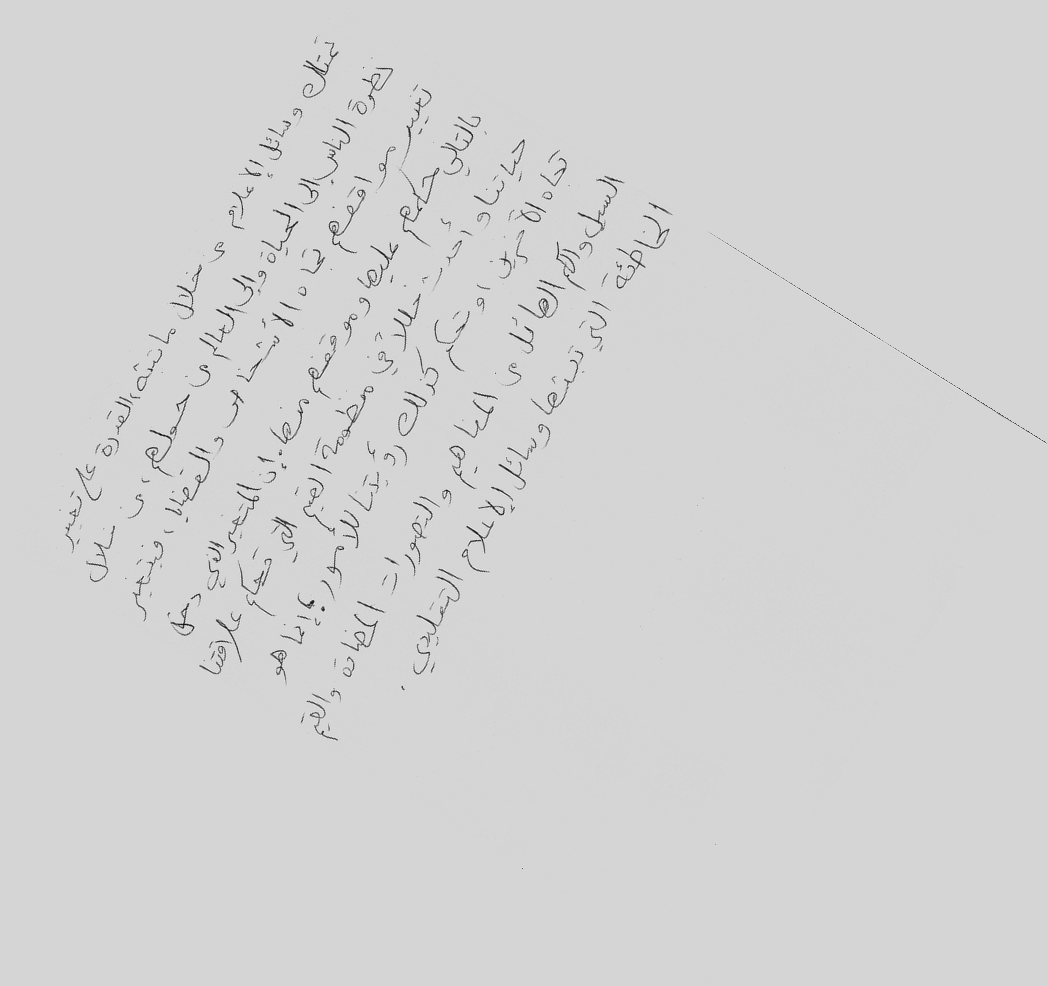 تمتلك وسائل الإعلام من خلال ما تبثه، القدرة على تغيير
نظرة الناس إلى الحياة وإلى العالم من حولهم، من خلال
تغيير مواقفهم تجاه الأشخاص والقضايا، فيتغير
بالتالي حكمهم عليها وموقفهم منها. إن المتغير الذي دخل
حياتنا وأحدث خللا في منظومة القيم التي تحكم علاقتنا
تجاه الآخرين وتحكم كذلك رؤيتنا للأمور، إنما هو
السيل والكم الهائل من المفاهيم والتصورات المضادة والقيم
الخاطئة التي تبثها وسائل الإعلام التقليدي.